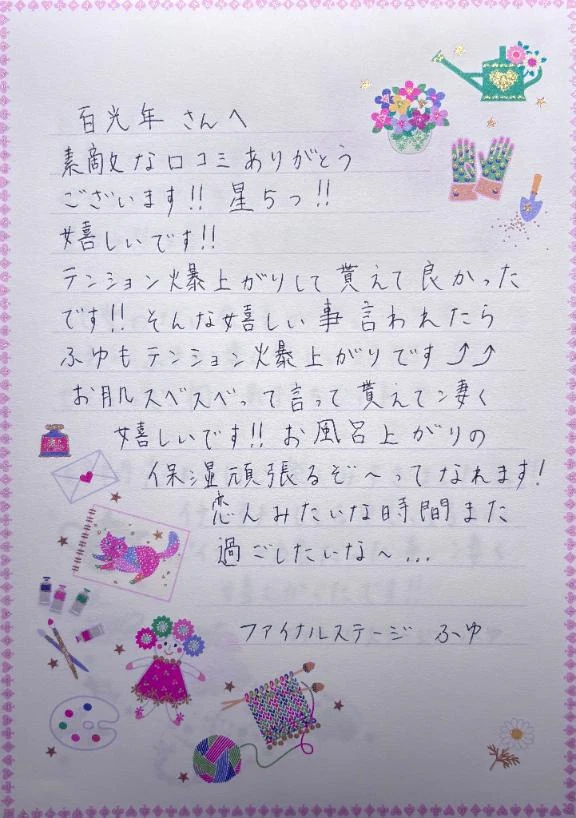 百光年 さんへ
素敵な口コミありがとう
ございます!! 星5つ!!
嬉しいです!!
テンション爆上がりして貰えて良かった
です!! そんな嬉しい事言われたら
ふゆもテンション爆上がりです⤴⤴
お肌スベスベって言って貰えて凄く
嬉しいです!! お風呂上がりの
保湿頑張るぞ〜ってなれます!
恋人みたいな時間また
過ごしたいな〜...
ファイナルステージ ふゆ